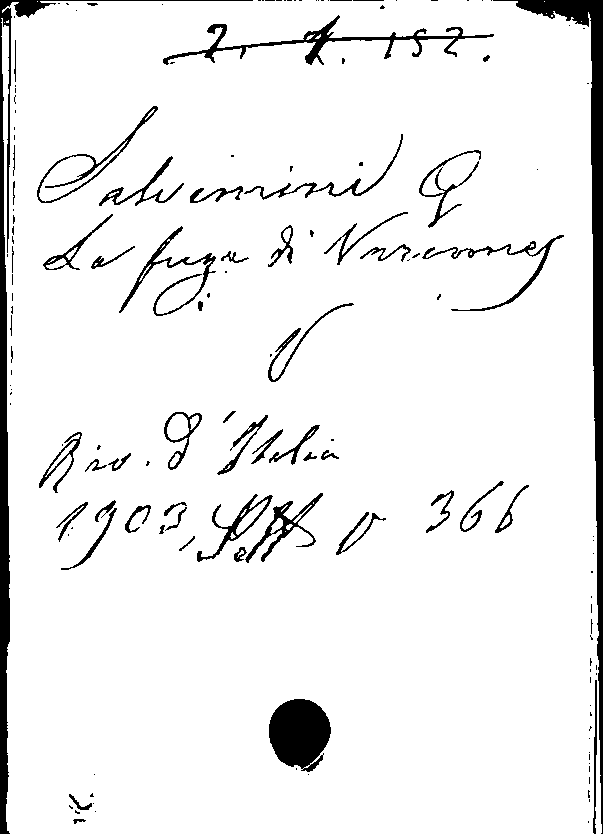 2. X. 152.
Salvemini G
La fuga di Varennes
V
Riv. d'Italia
1903, Sett V 366